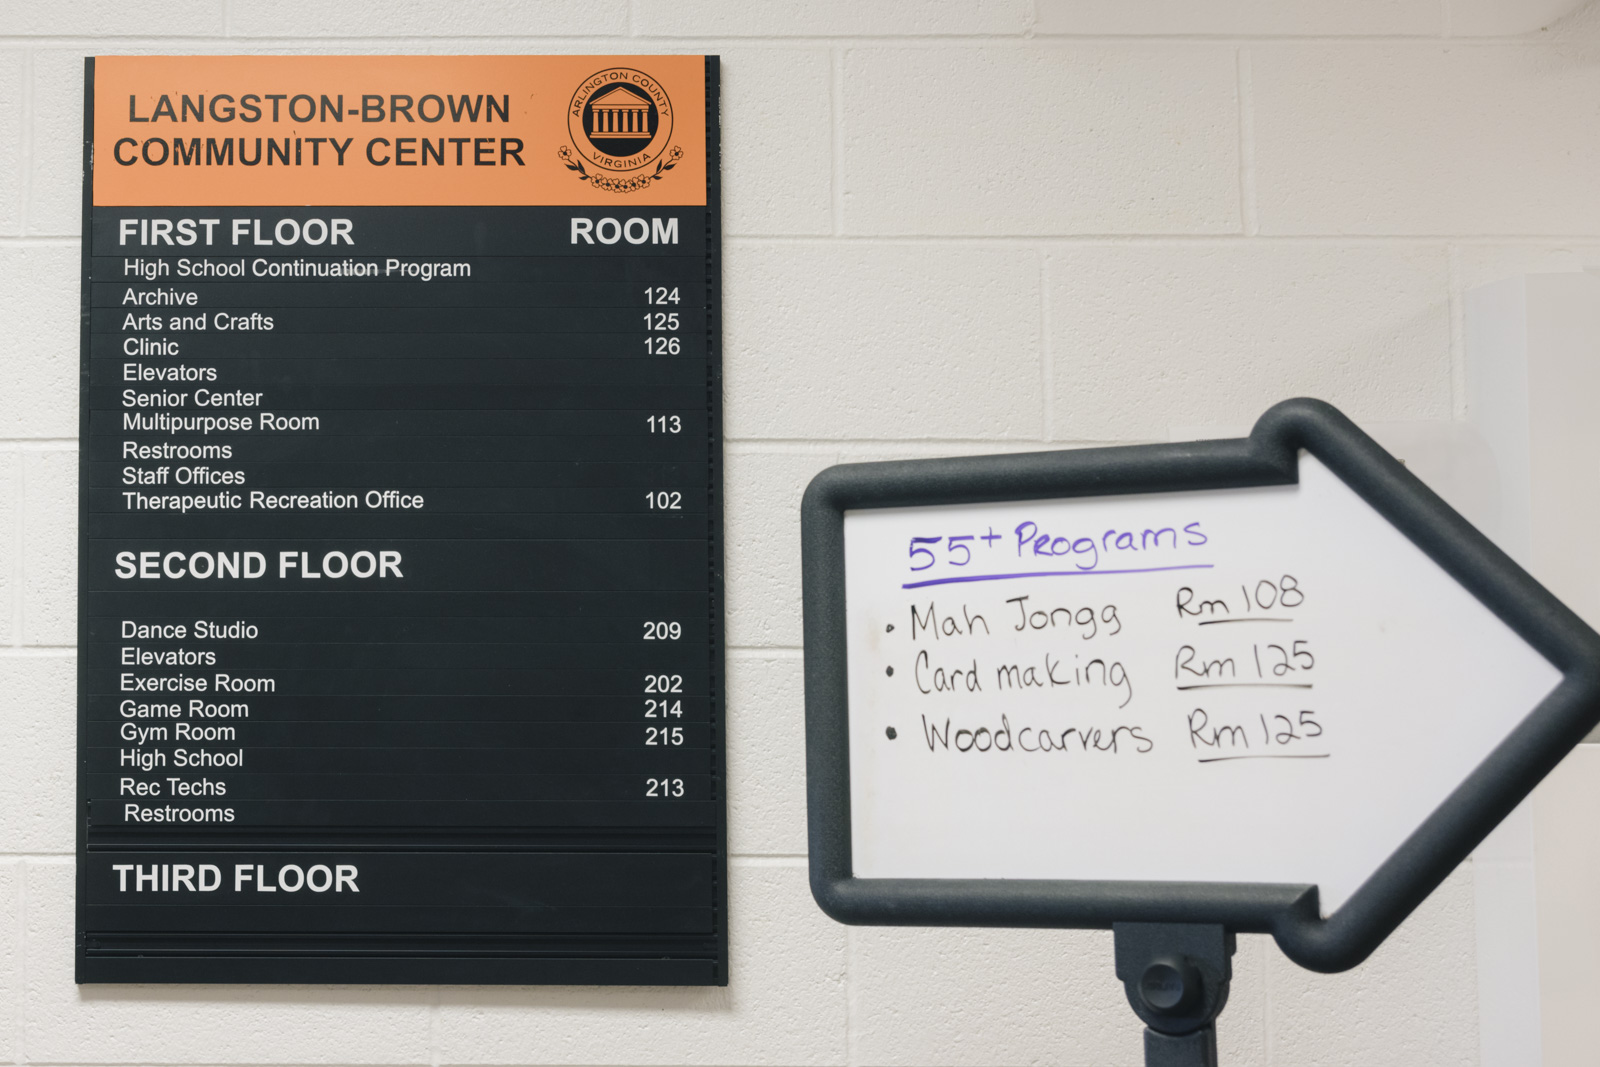 LANGSTON-BROWN
COMMUNITY CENTER
ARLINGTON COUNTY
VIRGINIA
FIRST FLOOR ROOM
High School Continuation Program
Archive 124
Arts and Crafts 125
Clinic 126
Elevators
Senior Center
Multipurpose Room 113
Restrooms
Staff Offices
Therapeutic Recreation Office 102
SECOND FLOOR
Dance Studio 209
Elevators
Exercise Room 202
Game Room 214
Gym Room 215
High School
Rec Techs 213
Restrooms
THIRD FLOOR
55+ Programs
• Mah Jongg Rm 108
• Card making Rm 125
• Woodcarvers Rm 125